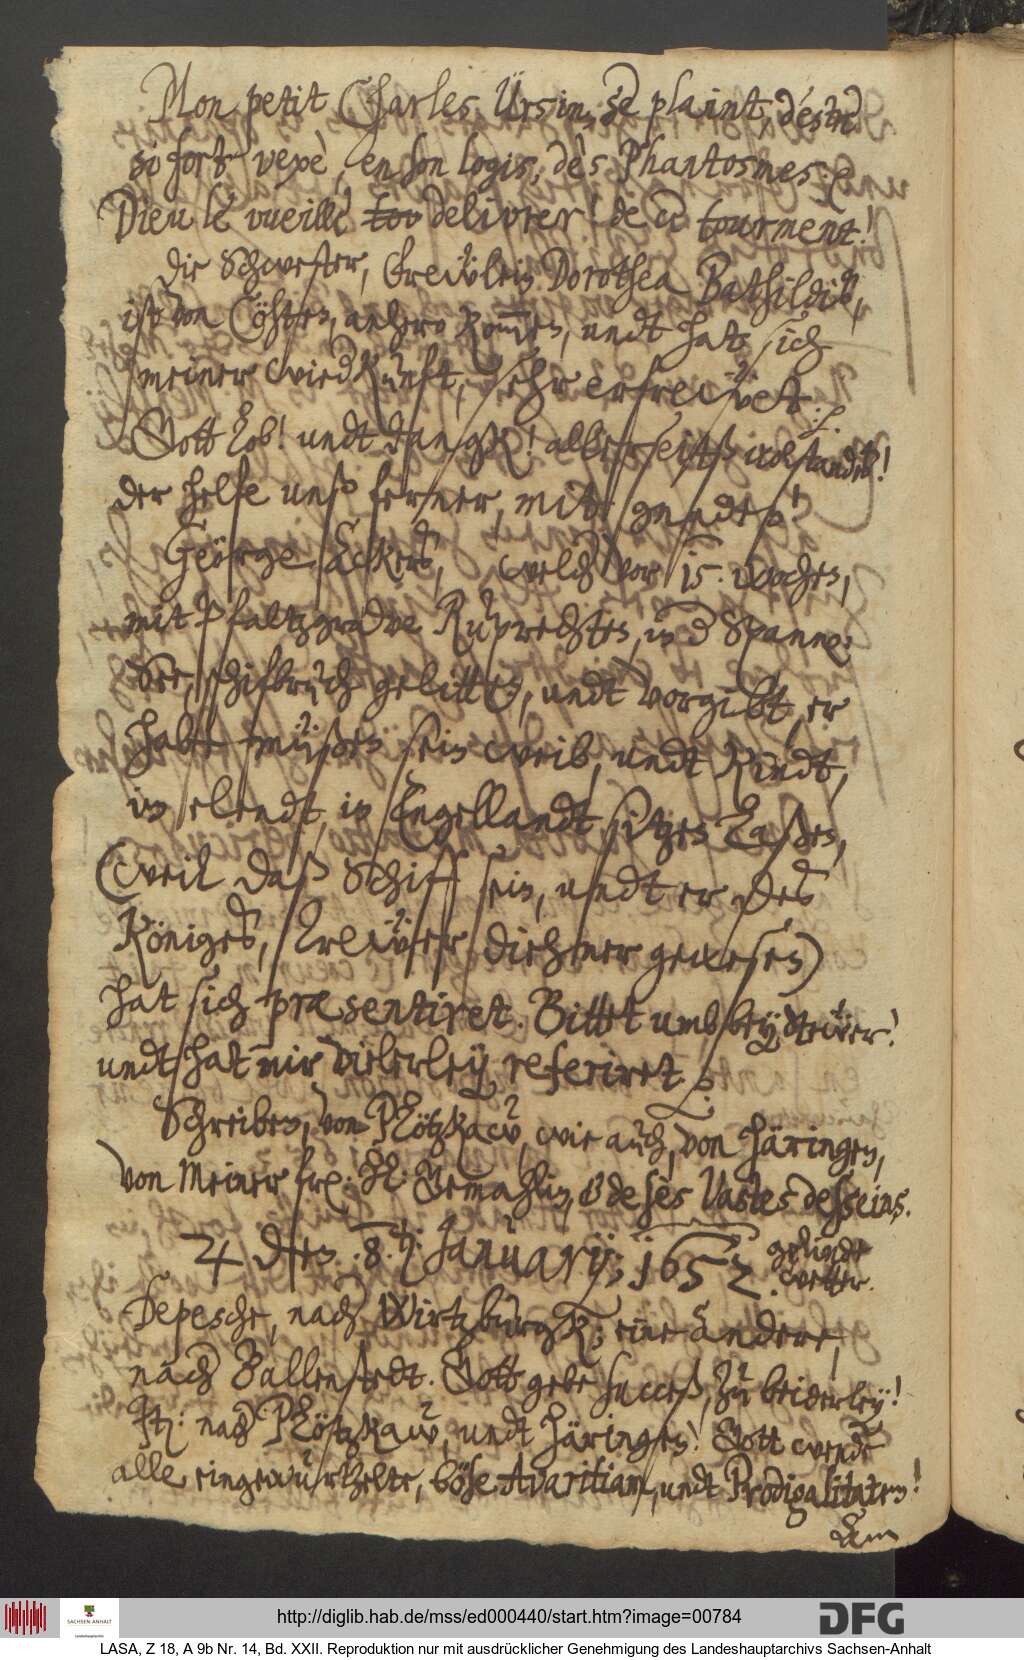 Mon petit Charles Ursin, se plaint, d'estre
so fort vexè, en son logis, dès Phantosmes. et
Dieu le vueille tov delivrer! de ce tourment!
Die Schwester, Freẅlein Dorothea Bathildis,
ist von Cöhten, anhero kommen, undt hat sich
meiner wiedkunft, sehr erfrewet.
Gott lob! undt dangk! allerseitß wolstandeß!
der helfe unß ferner, mitt gnaden!
Geörge Eckerd, welcher vor 15. wochen,
mit Pfaltzgrave Ruprechten, in der Spannischen
See, schifbruch gelitten, undt vorgibt, er
habe müßen sein weib, undt Kindt,
in elendt, in Engellandt sitzen laßen,
(weil daß Schiff sein, undt er des
Königes, Erkäüfer diehner gewesen)
hat sich præsentiret. Bittet umb beysteüer!
undt hat mir vielerley referiret.
Schreiben, von Plötzkaw, wie auch, von Häringen,
von Meiner freundlichen Hertzlieb(st)en Gemahlin, & de ses Vastes desseins.
♃ den: 8. January; 1652. gelinde
wetter.
Depesche, nach Wirtzburgk; eine andere,
nach Ballenstedt. Gott gebe succeß, zu beiderley!
It: nach Plötzkaw, undt Häringen! Gott wende
alle eingewurtzelte, böse Avaritiam, undt Prodigalitaten!
Ein
http://diglib.hab.de/mss/ed000440/start.htm?image=00784
SACHSEN-ANHALT
DFG
LASA, Z 18, A 9b Nr. 14, Bd. XXII. Reproduktion nur mit ausdrücklicher Genehmigung des Landeshauptarchivs Sachsen-Anhalt